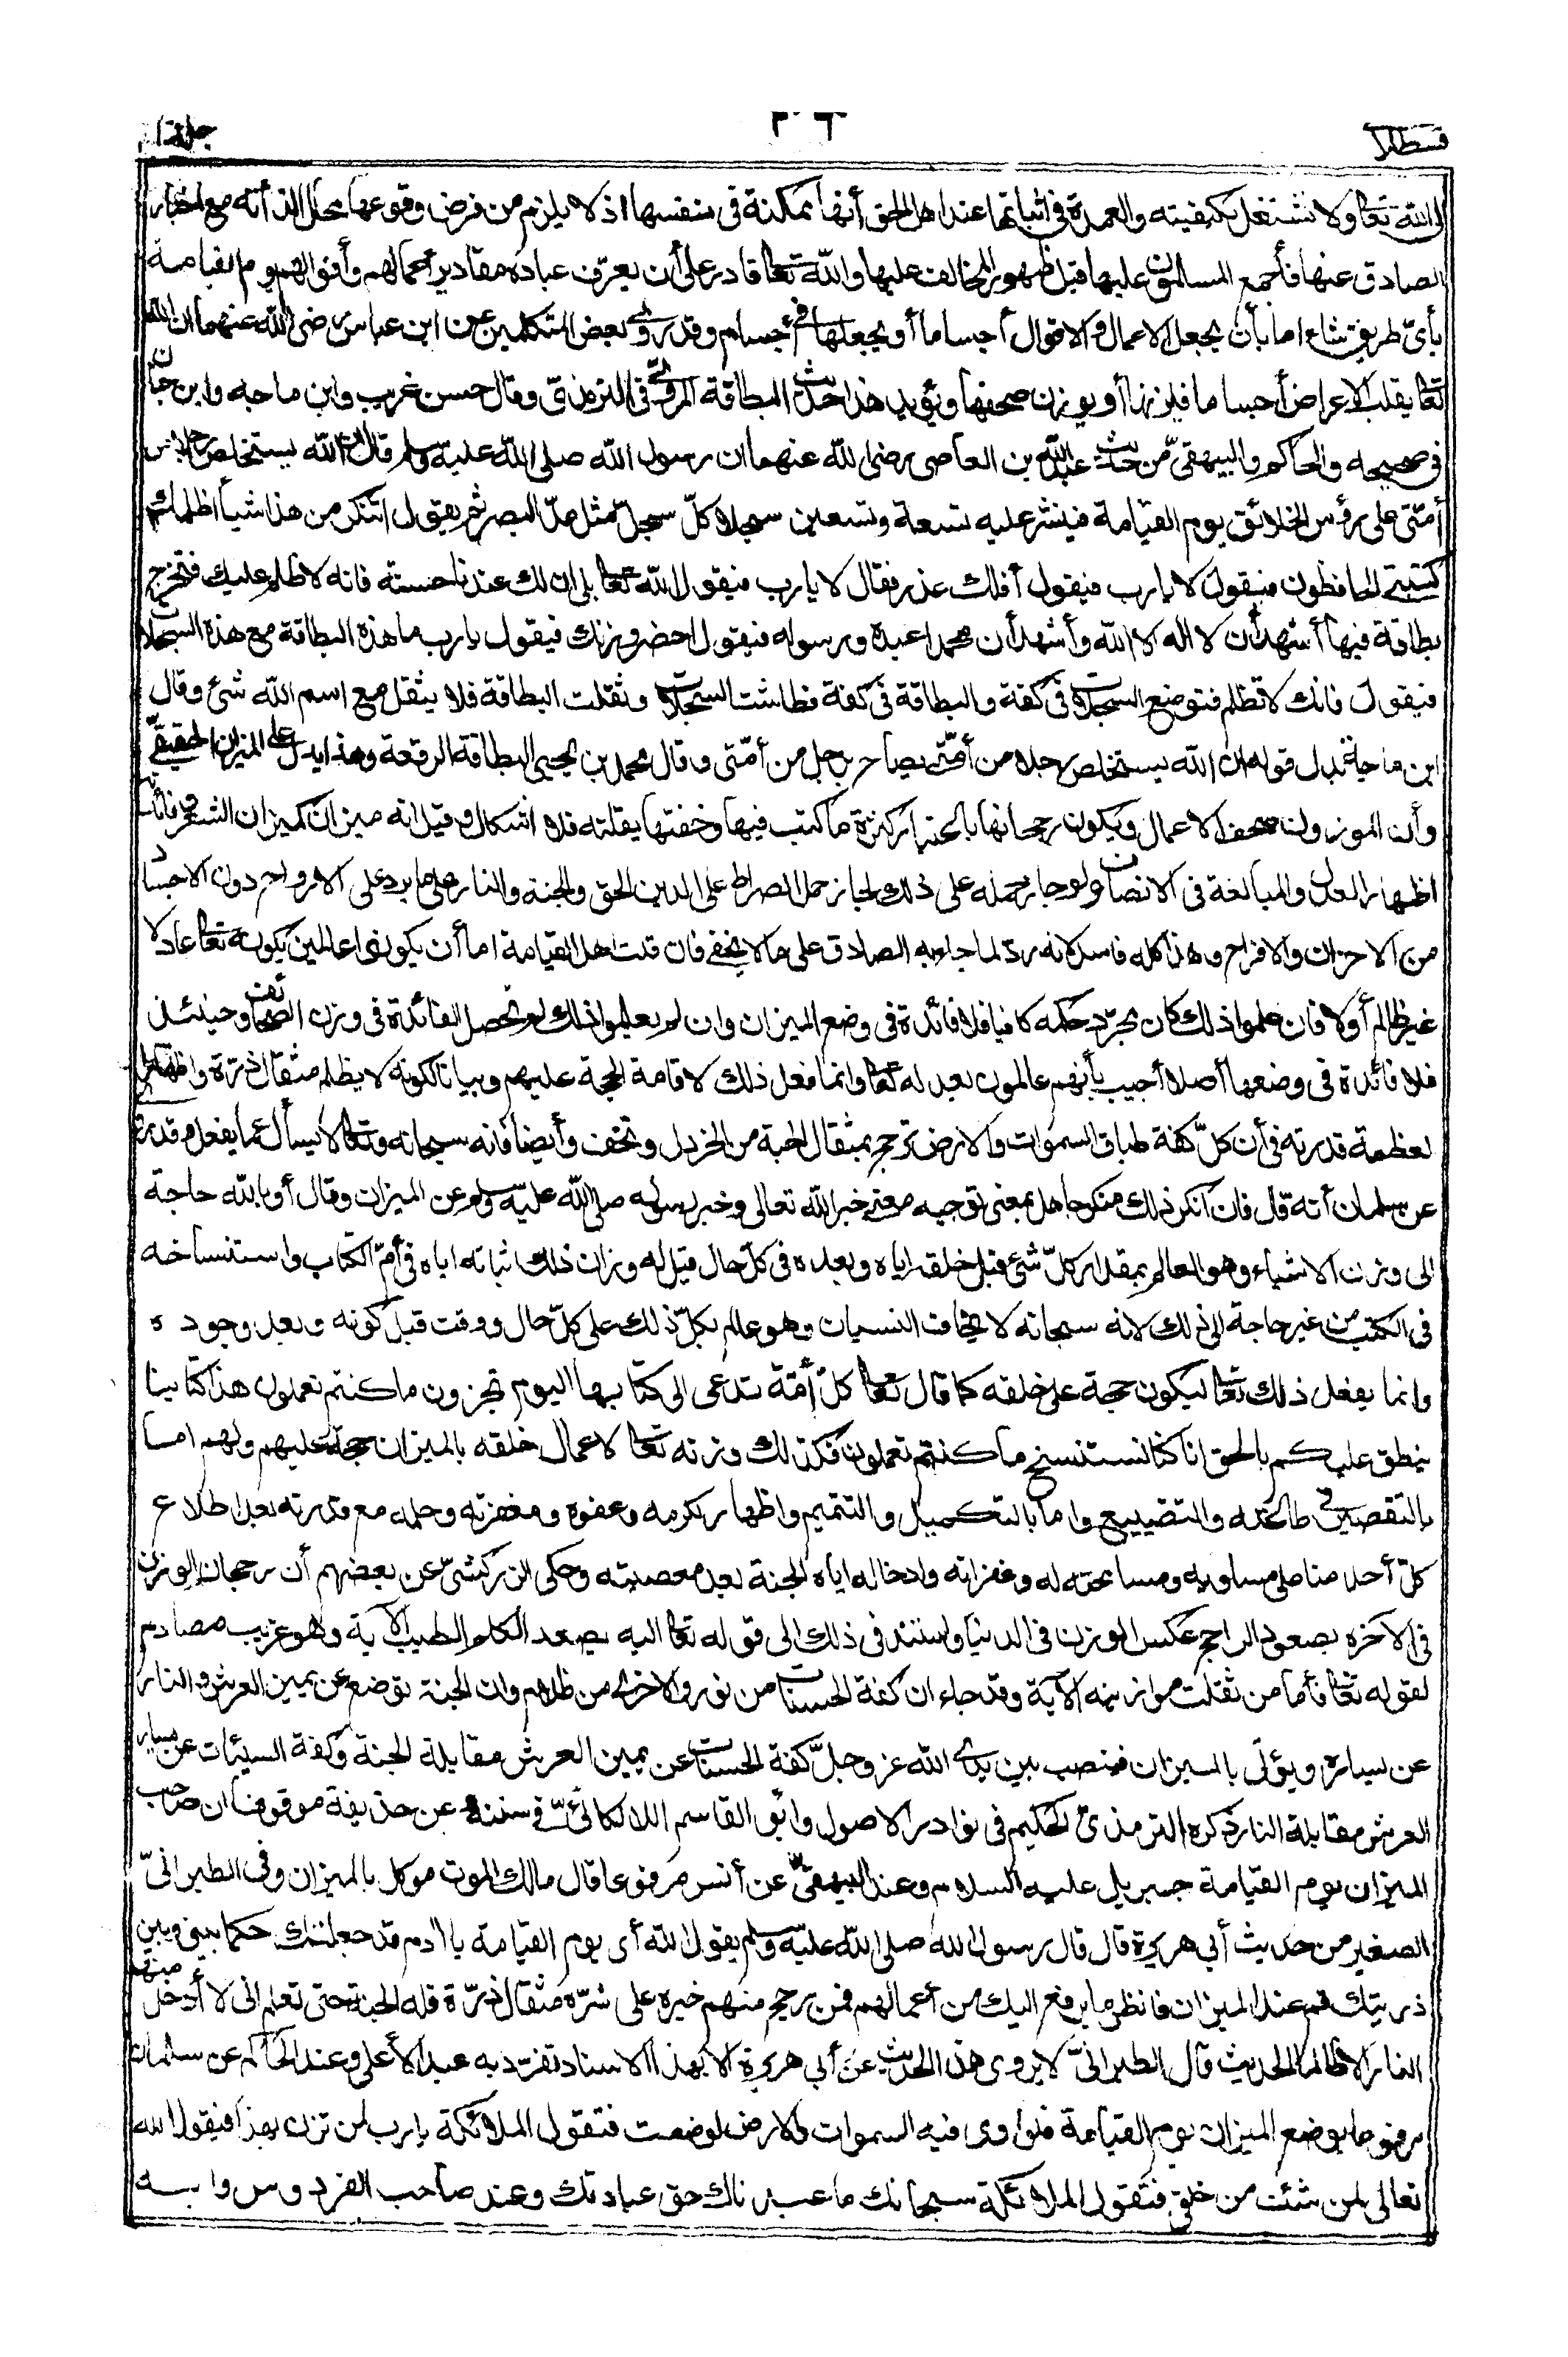 قسطلا ٣٠٦ جلد
الى الله تعالى ولا نشتغل بكيفيته والعمدة فى اثباتها عند اهل الحق أنها ممكنة فى نفسها اذ لا يلزم من فرض وقوعها محال لذاته مع اخبار
الصادق عنها فأجمع المسلمون عليها قبل ظهور المخالف عليها والله تعالى قادر على أن يعرّف عباده مقادير أعمالهم وأقوالهم يوم القيامة
بأىّ طريق شاء اما بأن يجعل الاعمال والاقوال أجساما أو يجعلها فى أجسام وقد روى بعض المتكلمين عن ابن عباس رضى الله عنهما ان الله
تعالى يقلب الاعراض أجساما فيزنها أو يوزن صحفها ويؤيد هذا حديث البطاقة المروىّ فى الترمذىّ وقال حسن غريب وابن ماجه وابن حبان
فى صحيحه والحاكم والبيهقىّ من حديث عبد الله بن العاصى رضى الله عنهما ان رسول الله صلى الله عليه وسلم قال ان الله يستخلص رجلا من
أمّتى على رؤس الخلائق يوم القيامة فينشر عليه تسعة وتسعين سجلا كلّ سجلّ مثل مدّ البصر ثم يقول اتنكر من هذا شيأ اظلمك
كتبتى الحافظون فيقول لا يارب فيقول أفلك عذر فقال لا يارب فيقول الله تعالى بلى ان لك عندنا حسنة فانه لا ظلم عليك فتخرج
بطاقة فيها أشهد أن لا اله الا الله وأشهد أن محمدا عبده ورسوله فيقول احضر وزنك فيقول يارب ما هذه البطاقة مع هذه السجلات
فيقول فانك لا تظلم فتوضع السجلات فى كفة والبطاقة فى كفة فطاشت السجلات وثقلت البطاقة فلا يثقل مع اسم الله شئ وقال
ابن ماجه بدل قوله ان الله يستخلص رجلا من أمّتى يصاح برجل من أمّتى وقال محمد بن يحيى البطاقة الرقعة وهذا يدل على الميزان الحقيقىّ
وأن الموزون صحف الاعمال ويكون رجحانها باعتبار كثرة ما كتب فيها وخفتها بقلته فلا اشكال وقيل انه ميزان كميزان الشعر وفائدته
اظهار العدل والمبالغة فى الانصاف ولو جاز حمله على ذلك لجاز حمل الصراط على الدين الحق والجنة والنار على ما يرد على الارواح دون الاجساد
من الاحزان والافراح وهذا كله فاسد لانه ردّ لما جاء به الصادق على ما لا يخفى فان قلت اهل القيامة اما أن يكونوا عالمين بكونه تعالى عادلا
غير ظالم أو لا فان علموا ذلك كان مجرّد حكمه كافيا فلا فائدة فى وضع الميزان وان لم يعلموا ذلك لم تحصل الفائدة فى وزن الصحائف وحينئذ
فلا فائدة فى وضعها أصلا أجيب بأنهم عالمون بعدله تعالى وانما فعل ذلك لاقامة الحجة عليهم وبيانا لكونه لا يظلم مثقال ذرّة واظهارا
لعظمة قدرته فى أن كلّ كفة طباق السموات والارض ترجح بمثقال الحبة من الخردل وتخف وأيضا فانه سبحانه وتعالى لا يسأل عما يفعل وقد روى
عن سلمان أنه قال فان أنكر ذلك منكر جاهل بمعنى توجيه معنى خبر الله تعالى وخبر رسوله صلى الله عليه وسلم عن الميزان وقال أو بالله حاجة
الى وزن الاشياء وهو العالم بمقدار كلّ شئ قبل خلقه اياه وبعده فى كلّ حال قيل له وزان ذلك اثباته اياه فى أمّ الكتاب واستنساخه
فى الكتب من غير حاجة الى ذلك لانه سبحانه لا يخاف النسيان وهو عالم بكلّ ذلك على كلّ حال ووقت قبل كونه وبعد وجوده
وانما يفعل ذلك تعالى ليكون حجة على خلقه كما قال تعالى كلّ أمّة تدعى الى كتابها اليوم تجزون ما كنتم تعملون هذا كتابنا
ينطق عليكم بالحق انا كنا نستنسخ ما كنتم تعملون فكذلك وزنه تعالى لاعمال خلقه بالميزان حجة عليهم ولهم اما
بالتقصير فى طاعته والتضييع واما بالتكميل والتتميم واظهار لكرمه وعفوه ومغفرته وحلمه مع قدرته بعد اطلاع
كلّ أحد منا على مساويه ومسامحته له وغفرانه وادخاله اياه الجنة بعد معصيته وحكى الزركشىّ عن بعضهم أن رجحان الوزن
فى الآخرة بصعود الراجح عكس الوزن فى الدنيا واستند فى ذلك الى قوله تعالى اليه يصعد الكلم الطيب الآية وهو غريب مصادم
لقوله تعالى فأما من ثقلت موازينه الآية وقد جاء ان كفة الحسنات من نور والاخرى من ظلام وان الجنة توضع عن يمين العرش والنار
عن يساره ويؤتى بالميزان فينصب بين يدى الله عز وجلّ كفة الحسنات عن يمين العرش مقابلة الجنة وكفة السيئات عن يسار
العرش مقابلة النار ذكره الترمذى الحكيم فى نوادر الاصول وابو القاسم اللالكائىّ فى سننه عن حذيفة موقوفا ان صاحب
الميزان يوم القيامة جبريل عليه السلام وعند البيهقىّ عن أنس مرفوعا قال ملك الموت موكل بالميزان وفى الطبرانىّ
الصغير من حديث أبى هريرة قال قال رسول الله صلى الله عليه وسلم يقول الله أى يوم القيامة يا آدم قد جعلتك حكما بينى وبين
ذريتك قم عند الميزان فانظر ما يرفع اليك من أعمالهم فمن رجح منهم خيره على شرّه مثقال ذرّة فله الجنة حتى تعلم انى لا أدخل منهم
النار الا ظالما الحديث قال الطبرانىّ لا يروى هذا الحديث عن أبى هريرة الا بهذا الاسناد تفرّد به عبد الأعلى وعند الحاكم عن سلمان
مرفوعا يوضع الميزان يوم القيامة فلو وزن فيه السموات والارض لوضعت فتقول الملائكة يارب لمن تزن بهذا فيقول الله
تعالى لمن شئت من خلقى فتقول الملائكة سبحانك ما عبدناك حق عبادتك وعند صاحب الفردوس وابنه